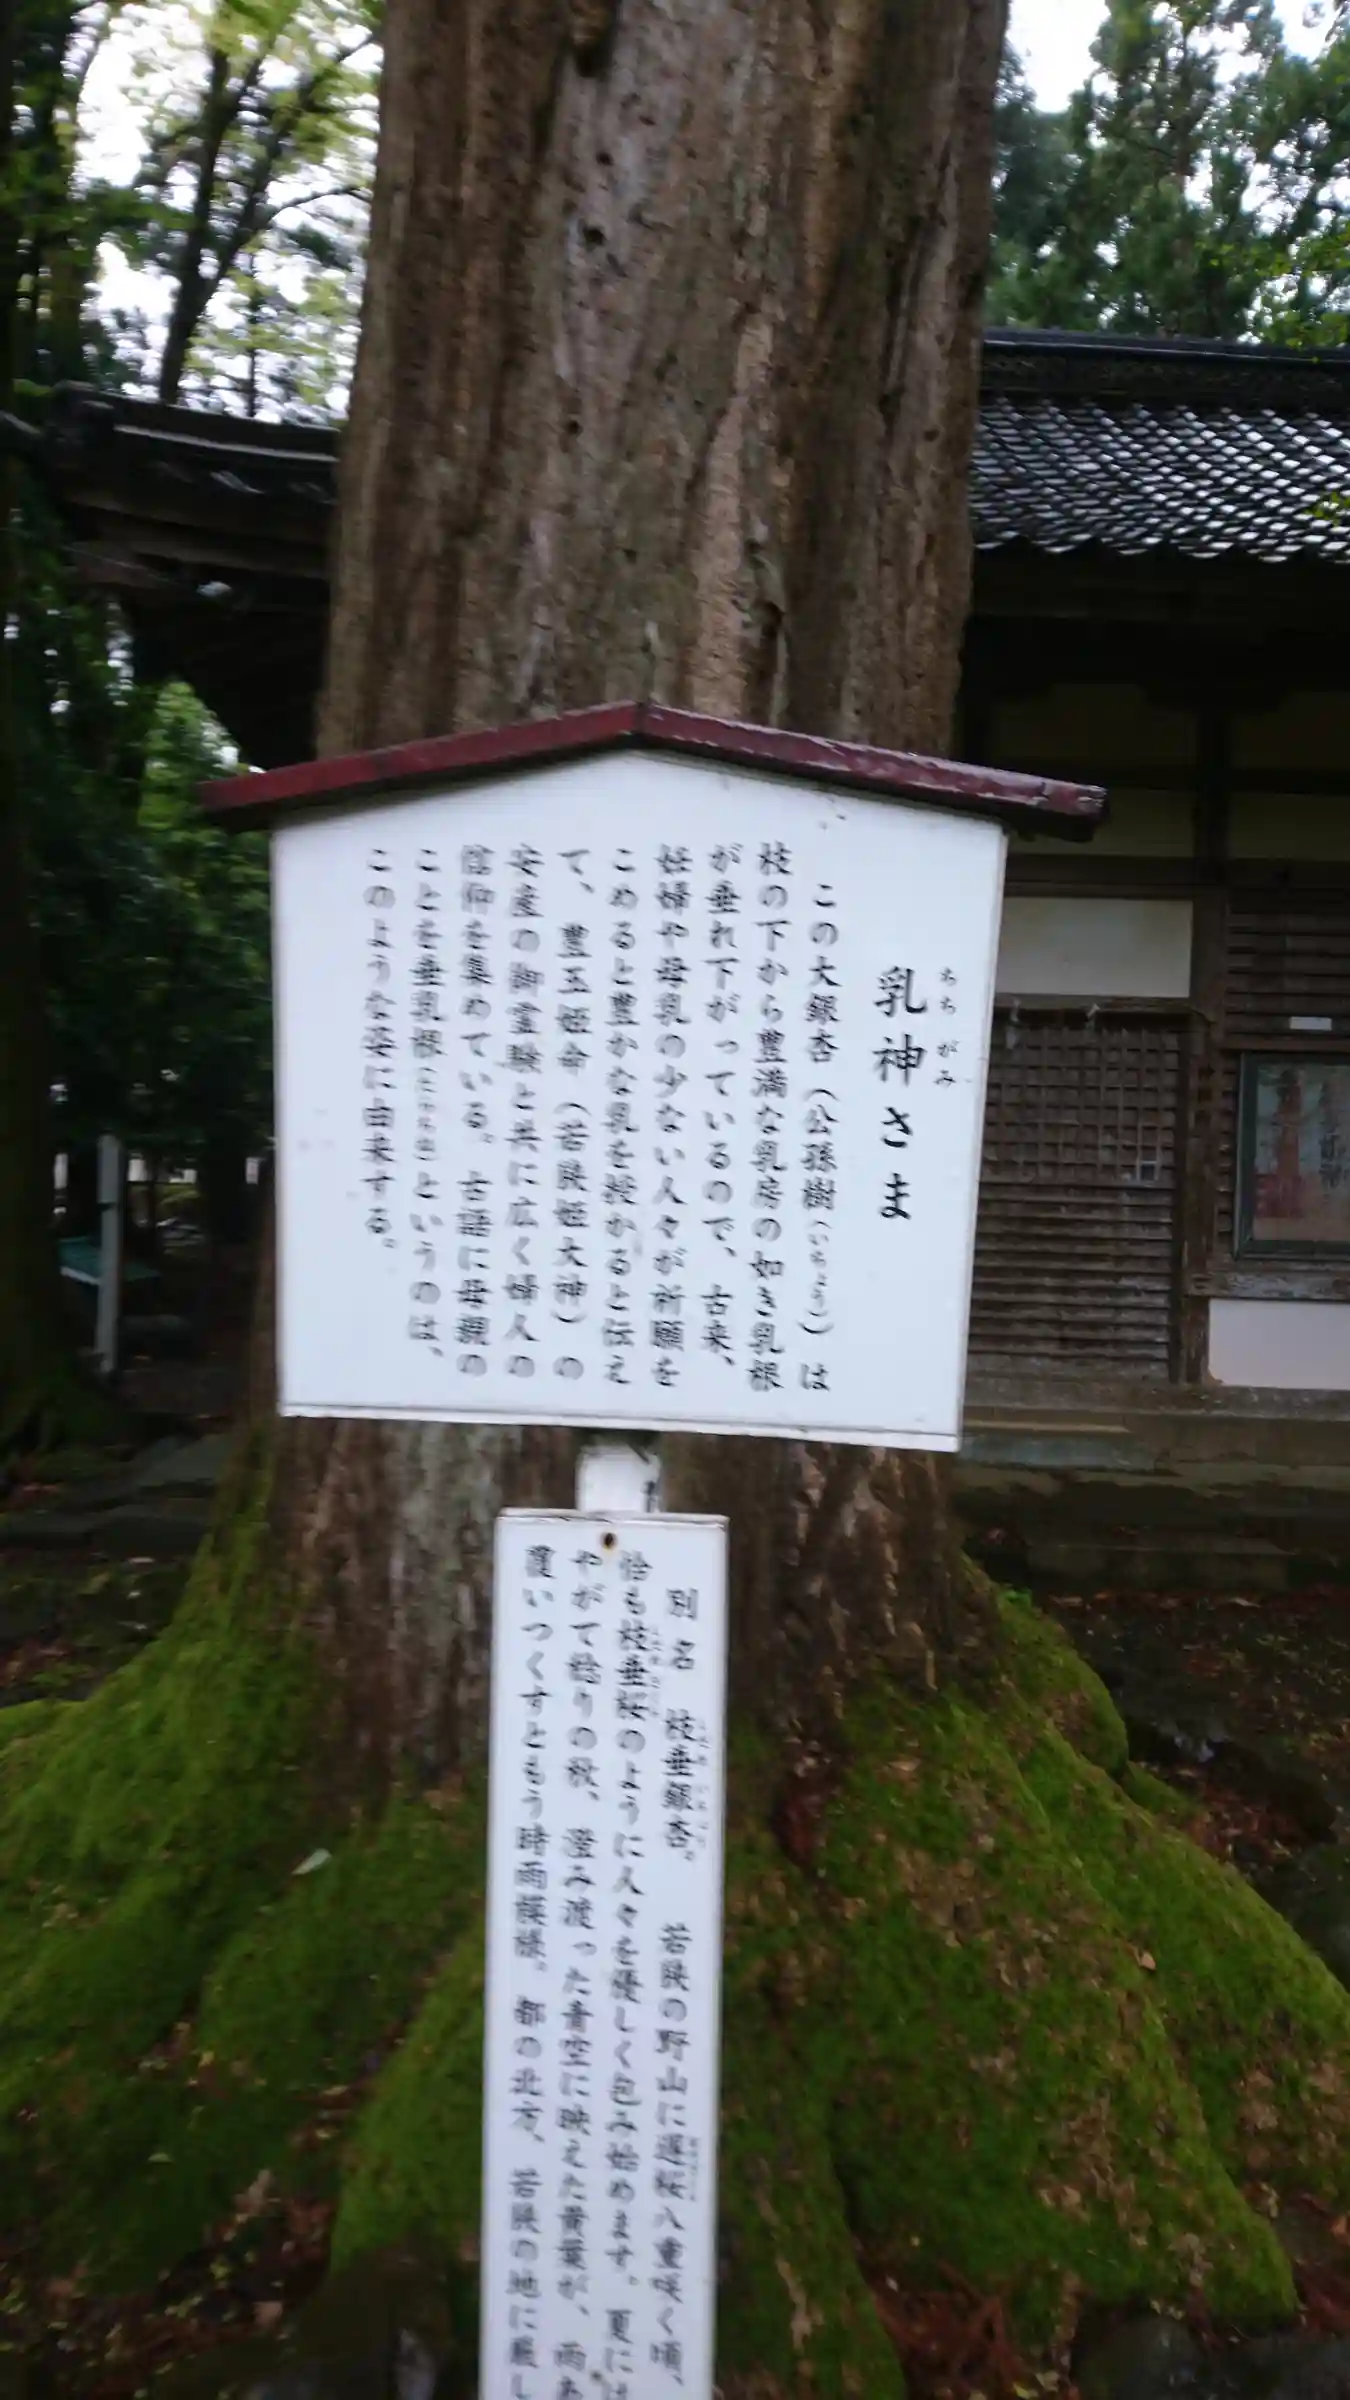 乳神さま
ちちがみ
この大銀杏（公孫樹（いちょう））は
枝の下から豊満な乳房の如き乳根
が垂れ下がっているので、古来、
妊婦や母乳の少ない人々が祈願を
こめると豊かな乳を授かると伝え
て、豊玉姫命（若狭姫大神）の
安産の御霊験と共に広く婦人の
信仰を集めている。古語に母親の
ことを垂乳根（たらちね）というのは、
このような姿に由来する。
別名 枝垂銀杏。 若狭の野山に遅桜八重咲く頃、
恰も枝垂桜のように人々を優しく包み始めます。夏には
やがて稔りの秋、澄み渡った青空に映えた黄葉が、雨あ
覆いつくすともう時雨模様。都の北方、若狭の地に厳し